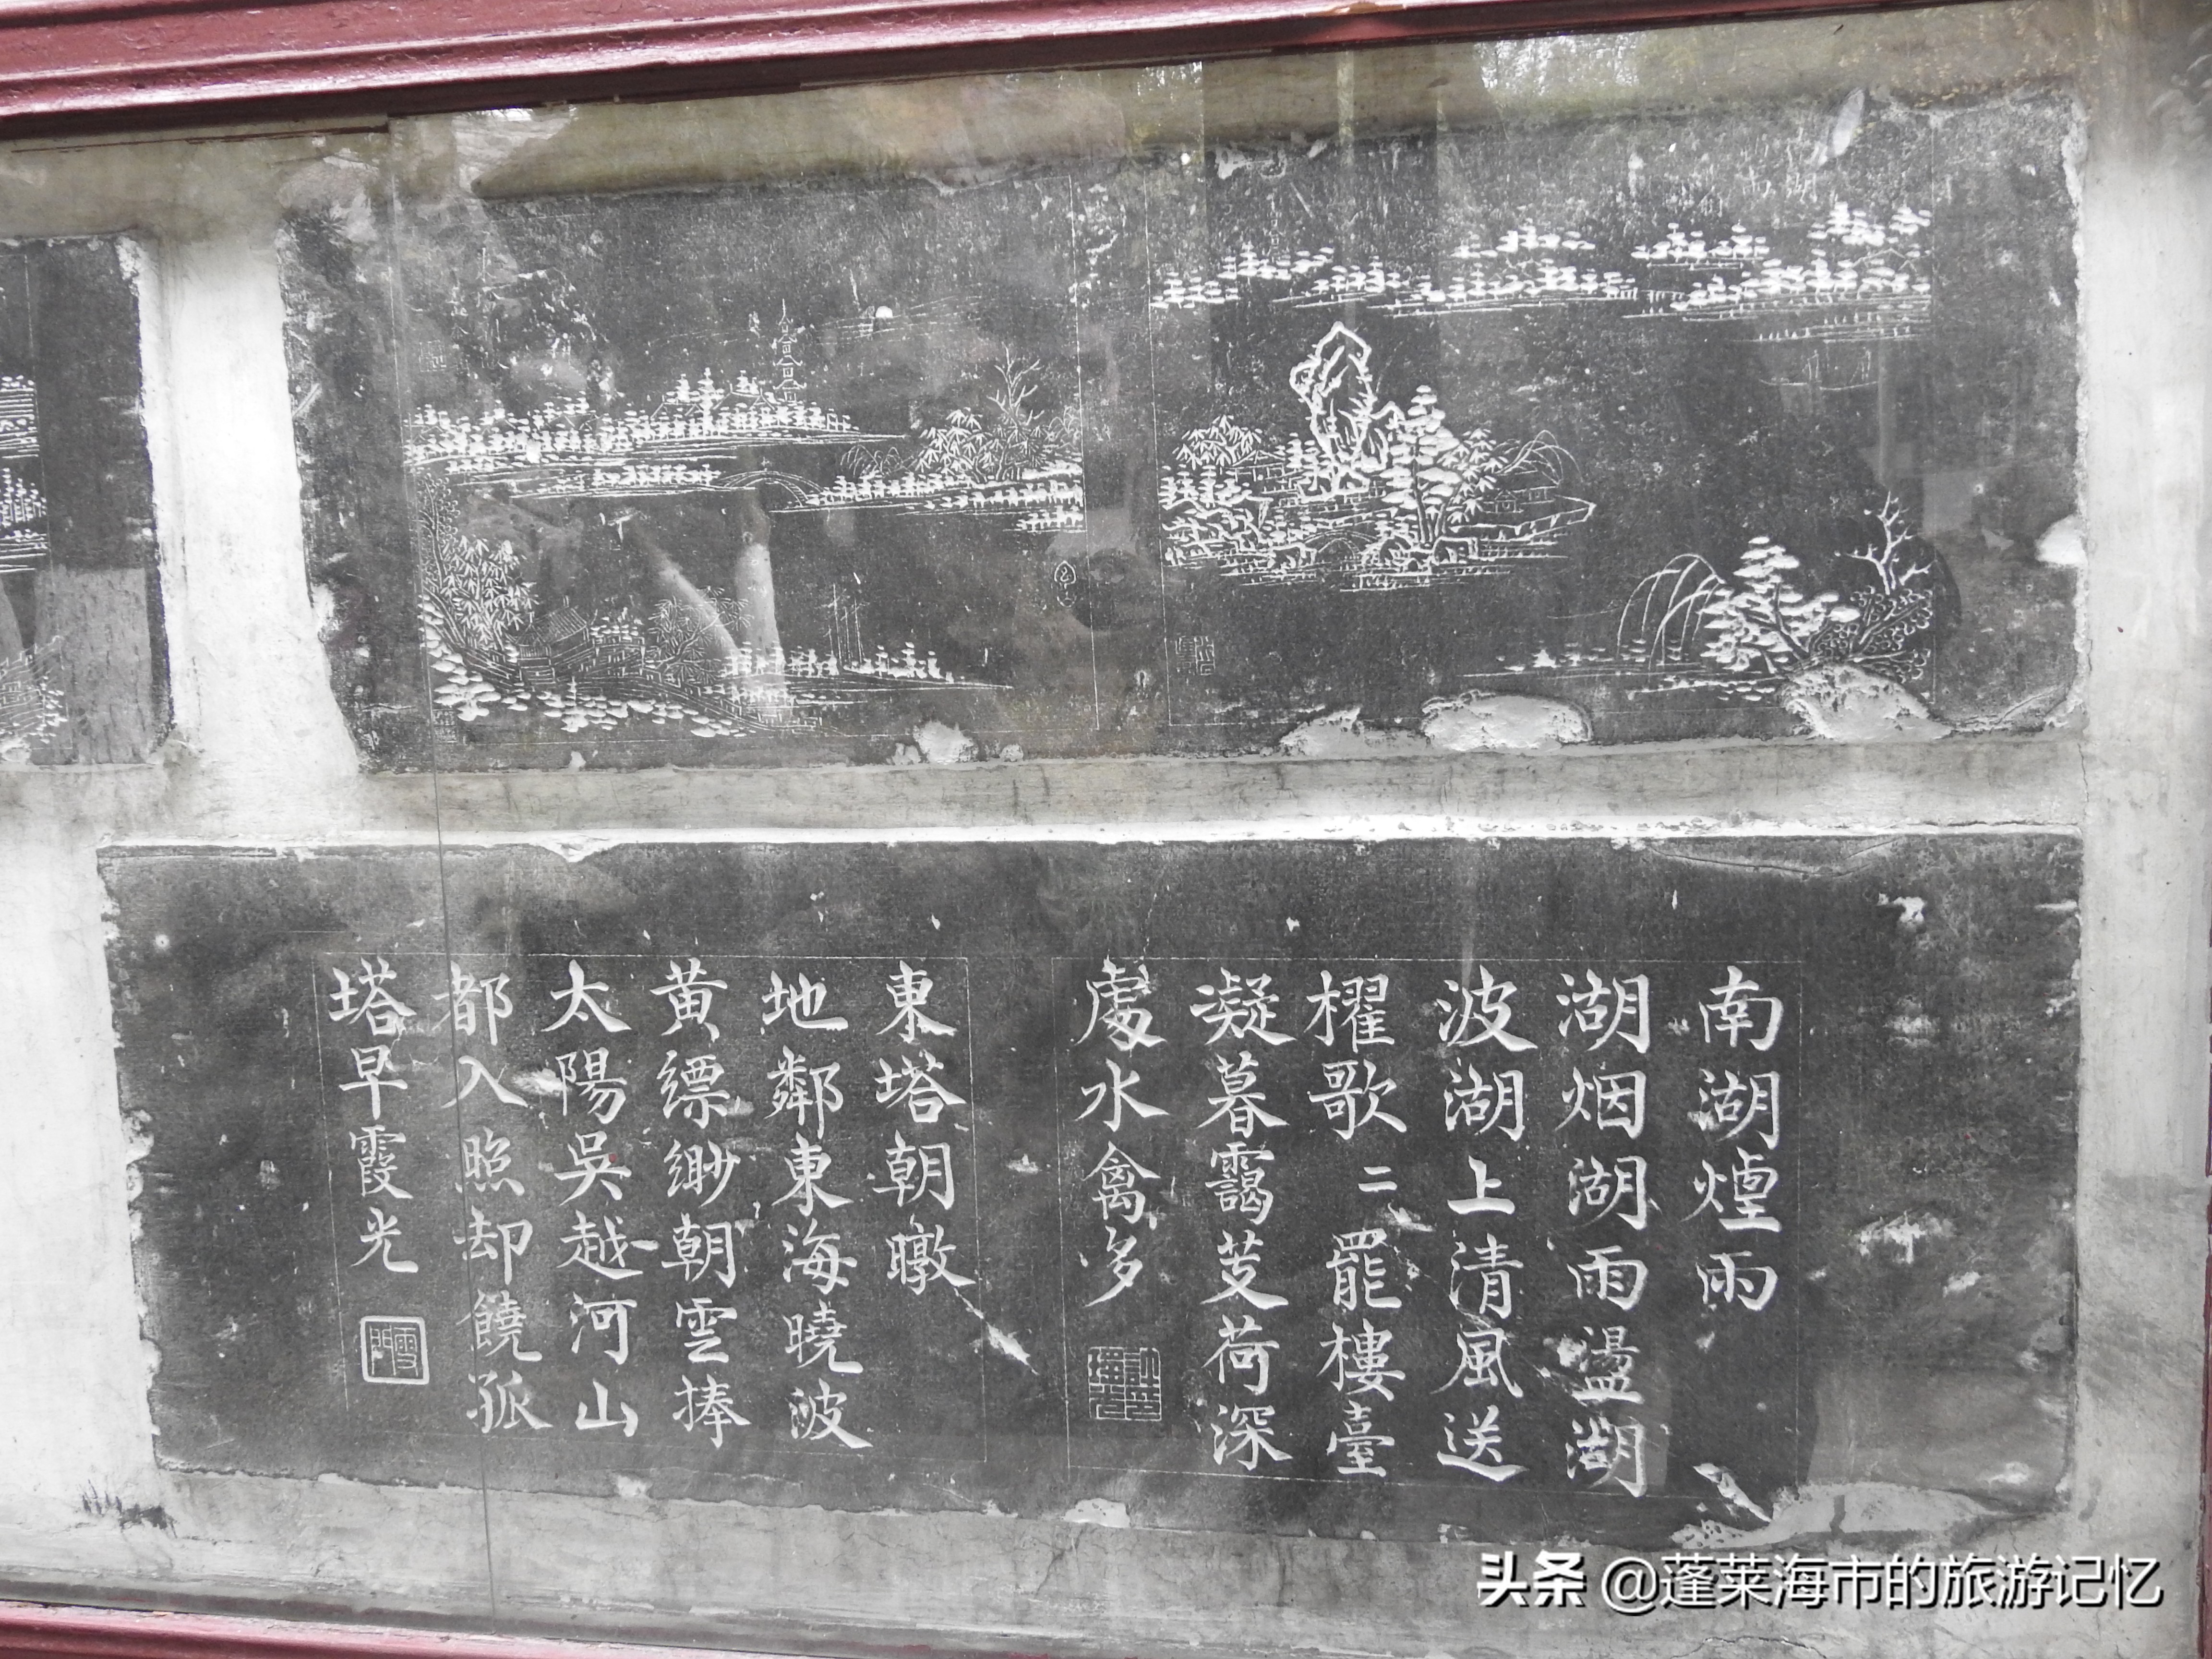 南湖煙雨
湖烟湖雨盪湖
波湖上清風送
櫂歌二罷樓臺
凝暮靄芰荷深
處水禽多
東塔朝暾
地鄰東海曉波
黄縹緲朝雲捧
太陽吳越河山
都入照却饒孤
塔早霞光
头条 @蓬莱海市的旅游记忆